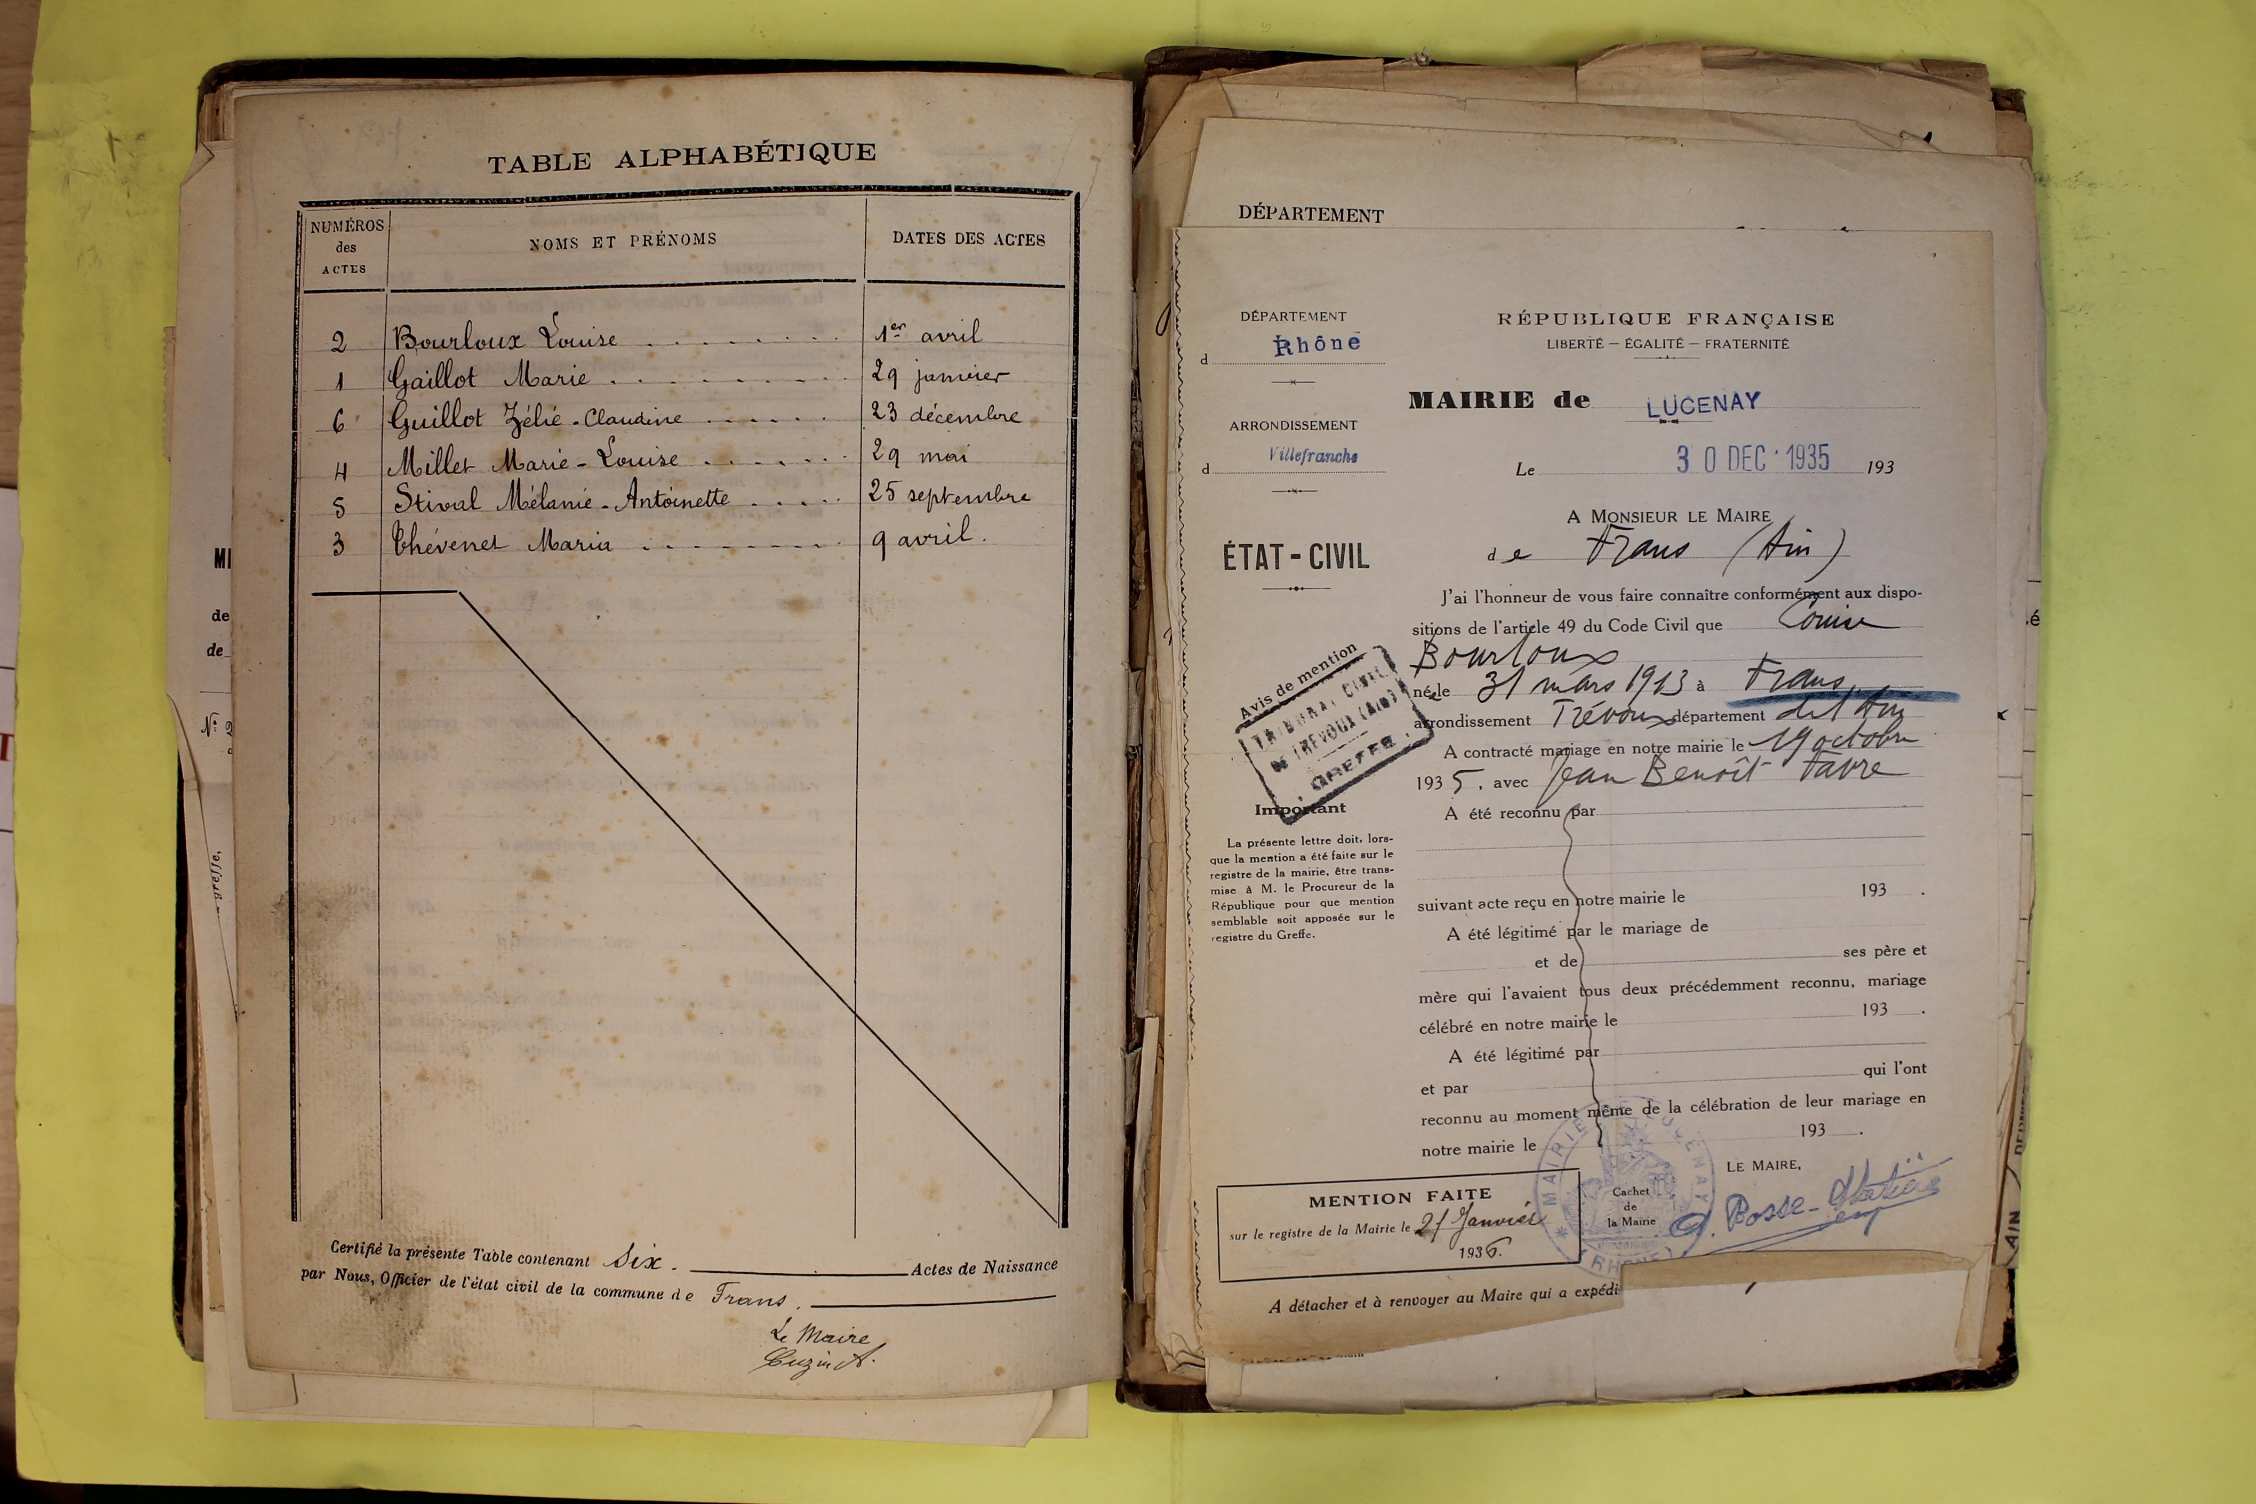 TABLE ALPHABÉTIQUE
NUMÉROS des ACTES
NOMS ET PRÉNOMS
DATES DES ACTES
2 Bourloux Louise 1er avril
1 Gaillot Marie 29 janvier
6 Guillot Zélie-Claudine 23 décembre
4 Millet Marie-Louise 29 mai
5 Stival Mélanie-Antoinette 25 septembre
3 Thévenet Maria 9 avril.
Certifié la présente Table contenant Six. Actes de Naissance
par Nous, Officier de l'état civil de la commune de Frans.
Le Maire
Cuzin A.
MI
de
de
N°
greffe,
DÉPARTEMENT
DÉPARTEMENT
d Rhône
ARRONDISSEMENT
d Villefranche
ÉTAT-CIVIL
Avis de mention
TRIBUNAL CIVIL
DE TRÉVOUX (Ain)
GREFFE.
Important
La présente lettre doit, lors-
que la mention a été faite sur le
registre de la mairie, être trans-
mise à M. le Procureur de la
République pour que mention
semblable soit apposée sur le
registre du Greffe.
RÉPUBLIQUE FRANÇAISE
LIBERTÉ — ÉGALITÉ — FRATERNITÉ
MAIRIE de LUCENAY
Le 30 DEC. 1935 193
A MONSIEUR LE MAIRE
de Frans (Ain)
J'ai l'honneur de vous faire connaître conformément aux dispo-
sitions de l'article 49 du Code Civil que Louise
Bourloux
née le 31 mars 1913 à Frans,
arrondissement Trévoux département de l'Ain
A contracté mariage en notre mairie le 19 octobre
1935, avec Jean Benoît Favre
A été reconnu par
suivant acte reçu en notre mairie le 193 .
A été légitimé par le mariage de
et de ses père et
mère qui l'avaient tous deux précédemment reconnu, mariage
célébré en notre mairie le 193 .
A été légitimé par
et par qui l'ont
reconnu au moment même de la célébration de leur mariage en
notre mairie le 193 .
LE MAIRE,
Cachet
de
la Mairie
MAIRIE DE LUCENAY
(RHONE)
MENTION FAITE
sur le registre de la Mairie le 21 Janvier
1936.
A détacher et à renvoyer au Maire qui a expédi